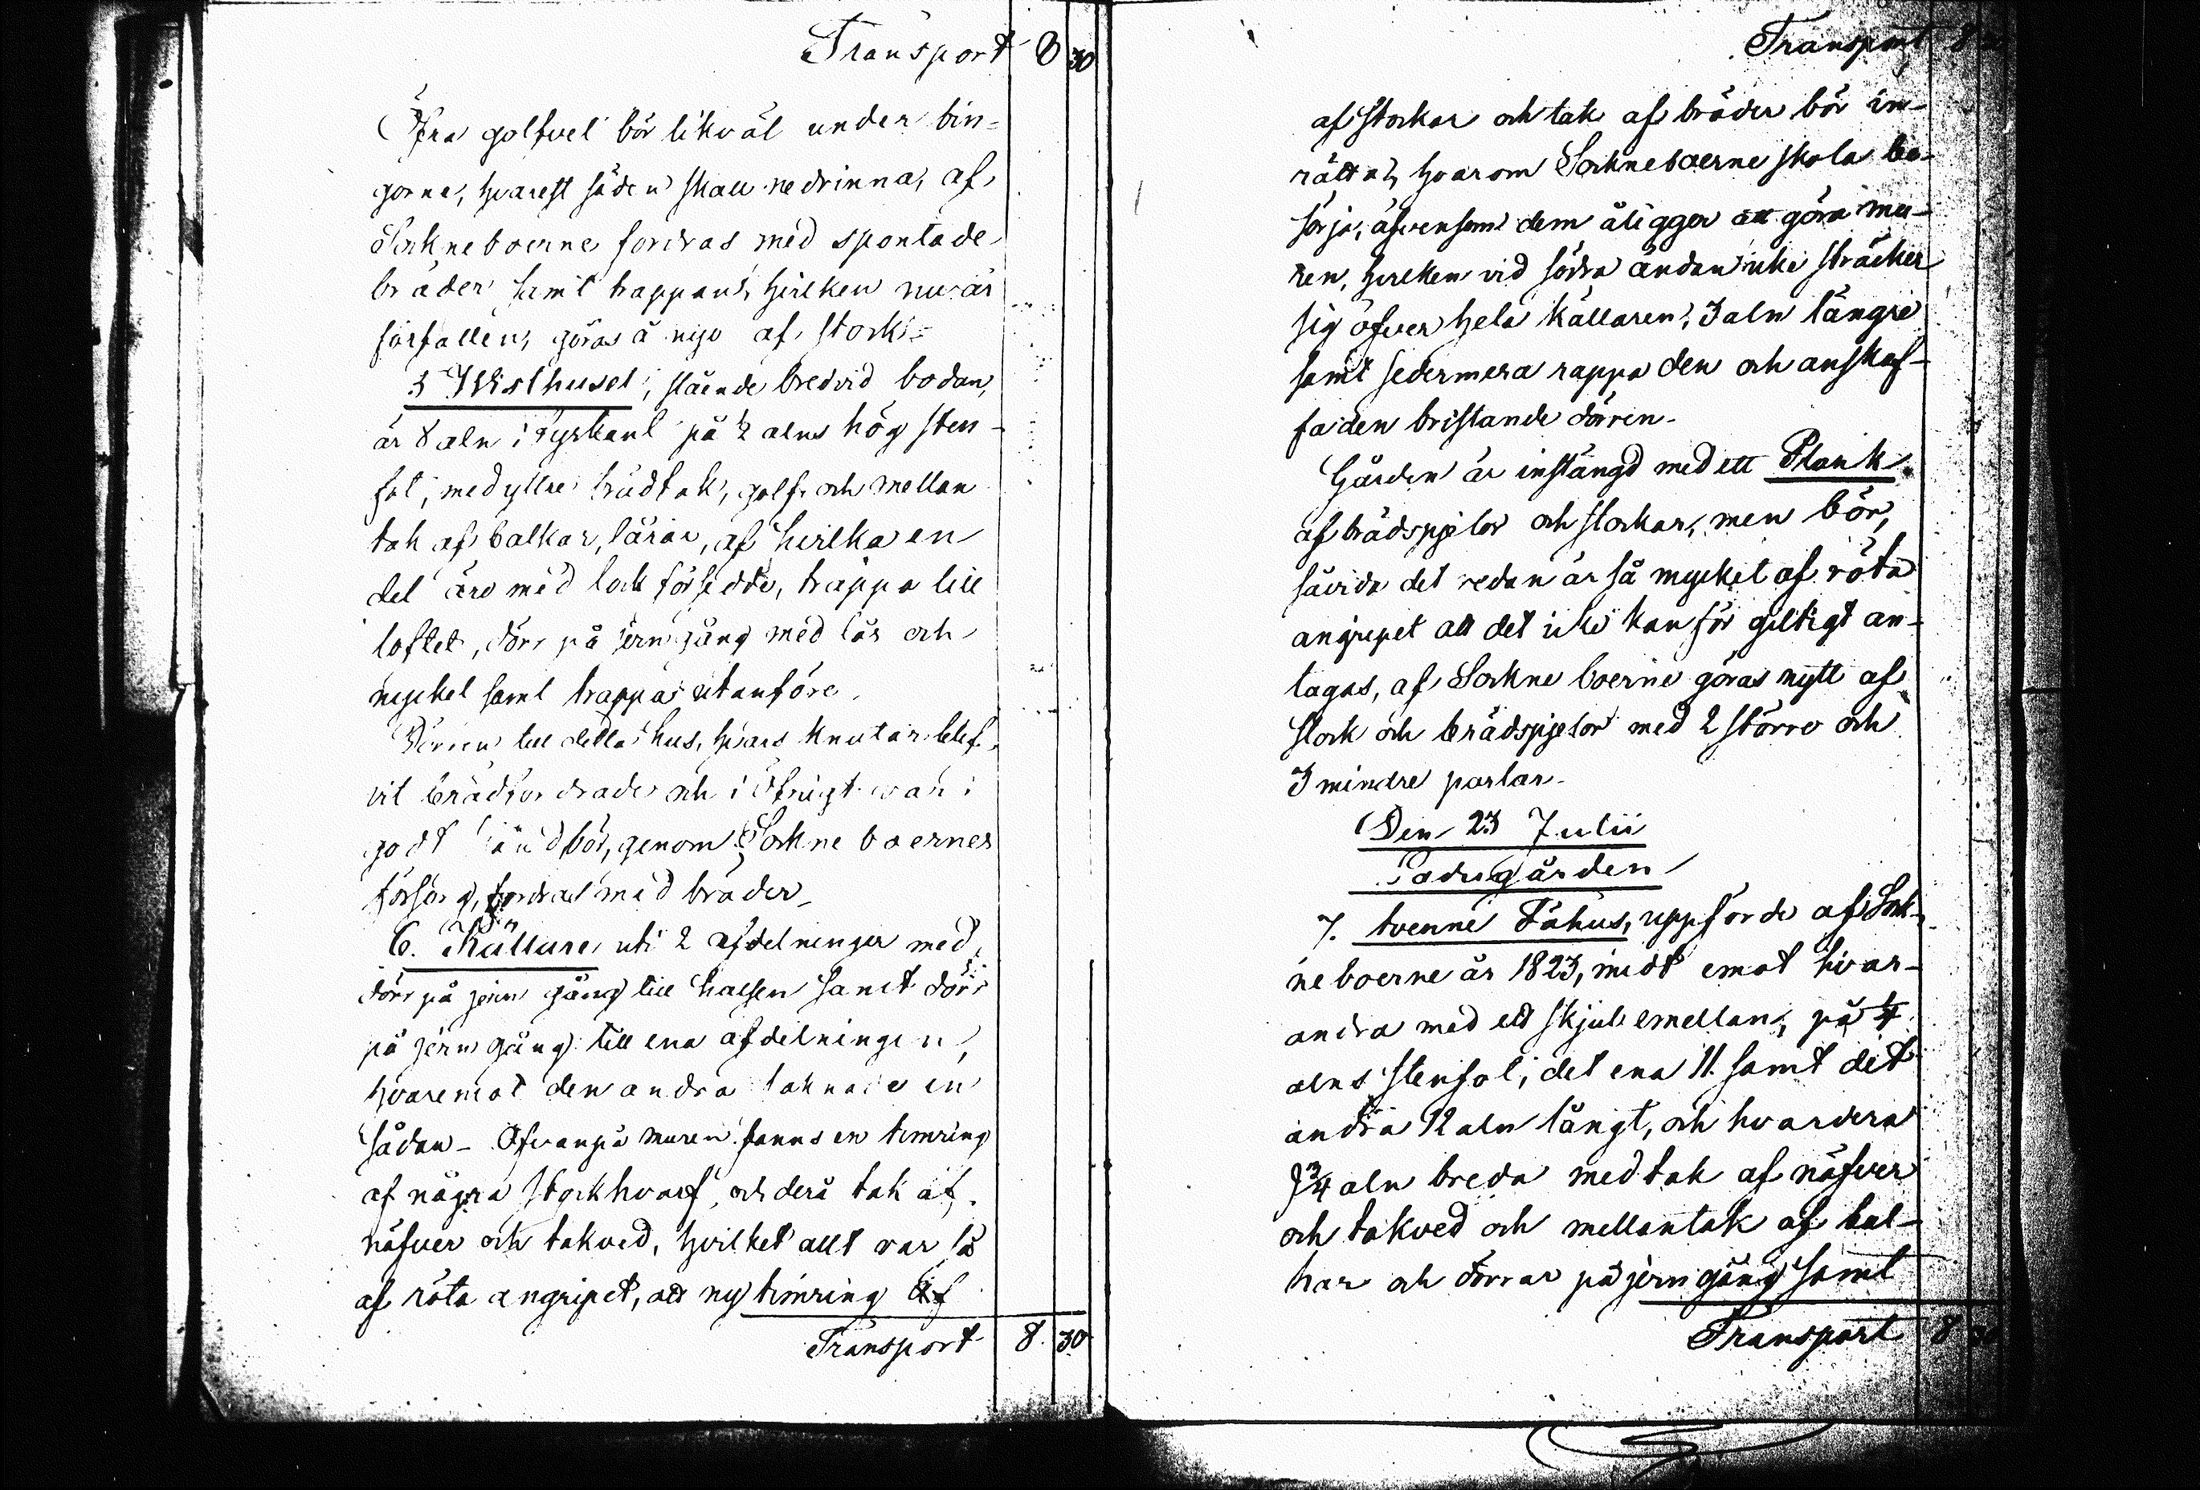 Transport 8 30
Öfra golfvet bör likväl under bin-
garne, hvarest säden skall nedrinna, af
Sockneboerne fordras med spontade
bräder samt trappan, hvilken nu är
förfallen, göras å nyo af stock.
5 Visthuset, stående bredvid bodan,
är 8 aln i fyrkant på ½ alns hög sten-
fot, med yttre trädtak, golf och mellan
tak af balkar, lårar, af hvilka en
del äro med lock försedde, trappa till
loftet, dörr på jerngång med lås och
nyckel samt trappa utanföre.
Dörren till detta hus, hvars knutar blif-
vit brädfordrade och i öfrigt var i
godt stånd bör, genom Sockneboernes
försorg, fordras med bräder.
6. Källare uti 2 afdelningar med
dörr på jern gång till halsen samt dörr
på jern gång till ena afdelningen,
hvaremot den andra saknade en
sådan - Ofvanpå muren fanns en timring
af några stockhvarf, och derå tak af
näfver och takved, hvilket allt var så
af röta angripet, att ny timring af
Transport 8. 30
Transport 8
af stockar och tak af bräder bör in-
rättas, hvarom Sockneboerne skola be-
sörja, äfvensom dem åligger att göra mu-
ren, hvilken vid södra ändan icke sträcker
sig öfver hela källaren, 3 aln längre
samt sedermera rappa den och anskaf-
fa den bristande dörren.
Gården är instängd med ett Plank
af brädspjelor och stockar, men bör,
såvida det redan är så mycket af röta
angripet att det icke kan för giltigt an-
tagas, af Sockneboerne göras nytt af
stock och brädspjelor med 2 större och
3 mindre portar.
Den 23 Julii
Ladugården
7. tvenne Fähus, uppförde af Sock-
neboerne år 1823, midt emot hvar-
andra med ett skjul emellan, på ½
alns stenfot, det ena 11. samt det
andra 12 aln långt, och hvardera
9¾ aln breda med tak af näfver
och takved och mellantak af bal-
kar och dörrar på jern gång samt
Transport 8